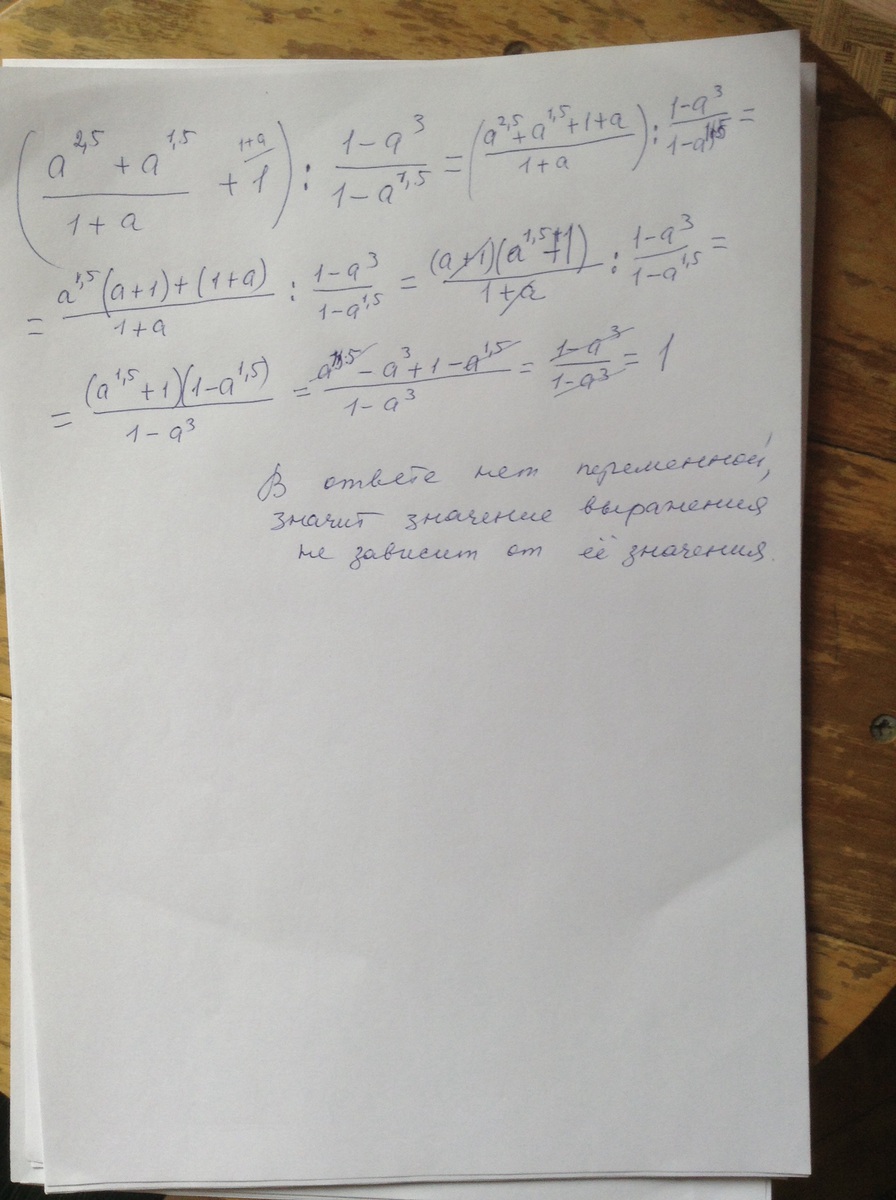 (a^2,5 + a^1,5 / 1 + a + 1^(1+a)) : 1 - a^3 / 1 - a^1,5 = (a^2,5 + a^1,5 + 1 + a / 1 + a) : 1 - a^3 / 1 - a^1,5 =
= a^1,5 (a+1) + (1+a) / 1 + a : 1 - a^3 / 1 - a^1,5 = (a+1)(a^1,5 + 1) / 1 + a : 1 - a^3 / 1 - a^1,5 =
= (a^1,5 + 1)(1 - a^1,5) / 1 - a^3 = a^1,5 - a^3 + 1 - a^1,5 / 1 - a^3 = 1 - a^3 / 1 - a^3 = 1
В ответе нет переменной,
значит значение выражения
не зависит от её значения.